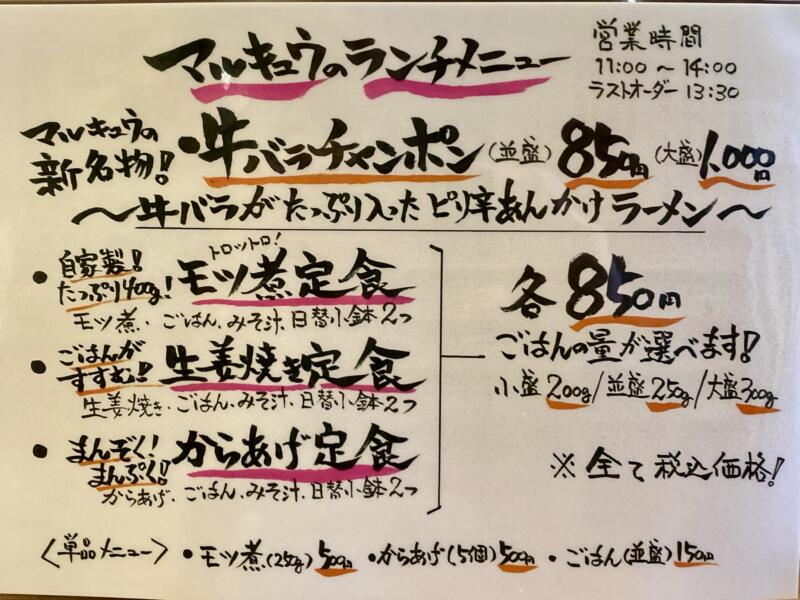 マルキュウのランチメニュー
営業時間
11:00～14:00
ラストオーダー 13:30
マルキュウの
新名物！
・牛バラチャンポン(並盛)850円(大盛)1,000円
～牛バラがたっぷり入ったピリ辛あんかけラーメン～
トロットロ！
● 自家製！
たっぷり400g！
モツ煮定食
モツ煮、ごはん、みそ汁、日替小鉢2つ
● ごはんが
すすむ!!
生姜焼き定食
生姜焼き、ごはん、みそ汁、日替小鉢2つ
● まんぞく！
まんぷく！
からあげ定食
からあげ、ごはん、みそ汁、日替小鉢2つ
各850円
ごはんの量が選べます！
小盛200g/並盛250g/大盛300g
※全て税込価格！
〈単品メニュー〉 ・モツ煮(250g)500円 ・からあげ(5個)500円 ・ごはん(並盛)150円